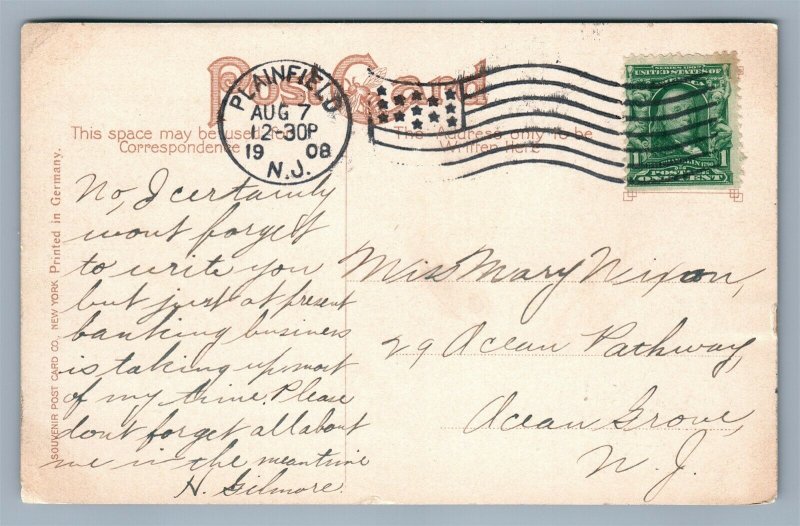 Post Card
PLAINFIELD
AUG 7
12-30P
1908
N.J.
This space may be used for
Correspondence
The Address only to be
Written Here
SERIES 1902
UNITED STATES OF AMERICA
FRANKLIN
POSTAGE
1 ONE CENT 1
SOUVENIR POST CARD CO., NEW YORK Printed in Germany.
No, I certainly
wont forget
to write you
but just at present
banking business
is taking up most
of my time. Please
dont forget all about
me in the meantime
H. Gilmore.
Miss Mary Nixon,
29 Ocean Pathway,
Ocean Grove,
N. J.